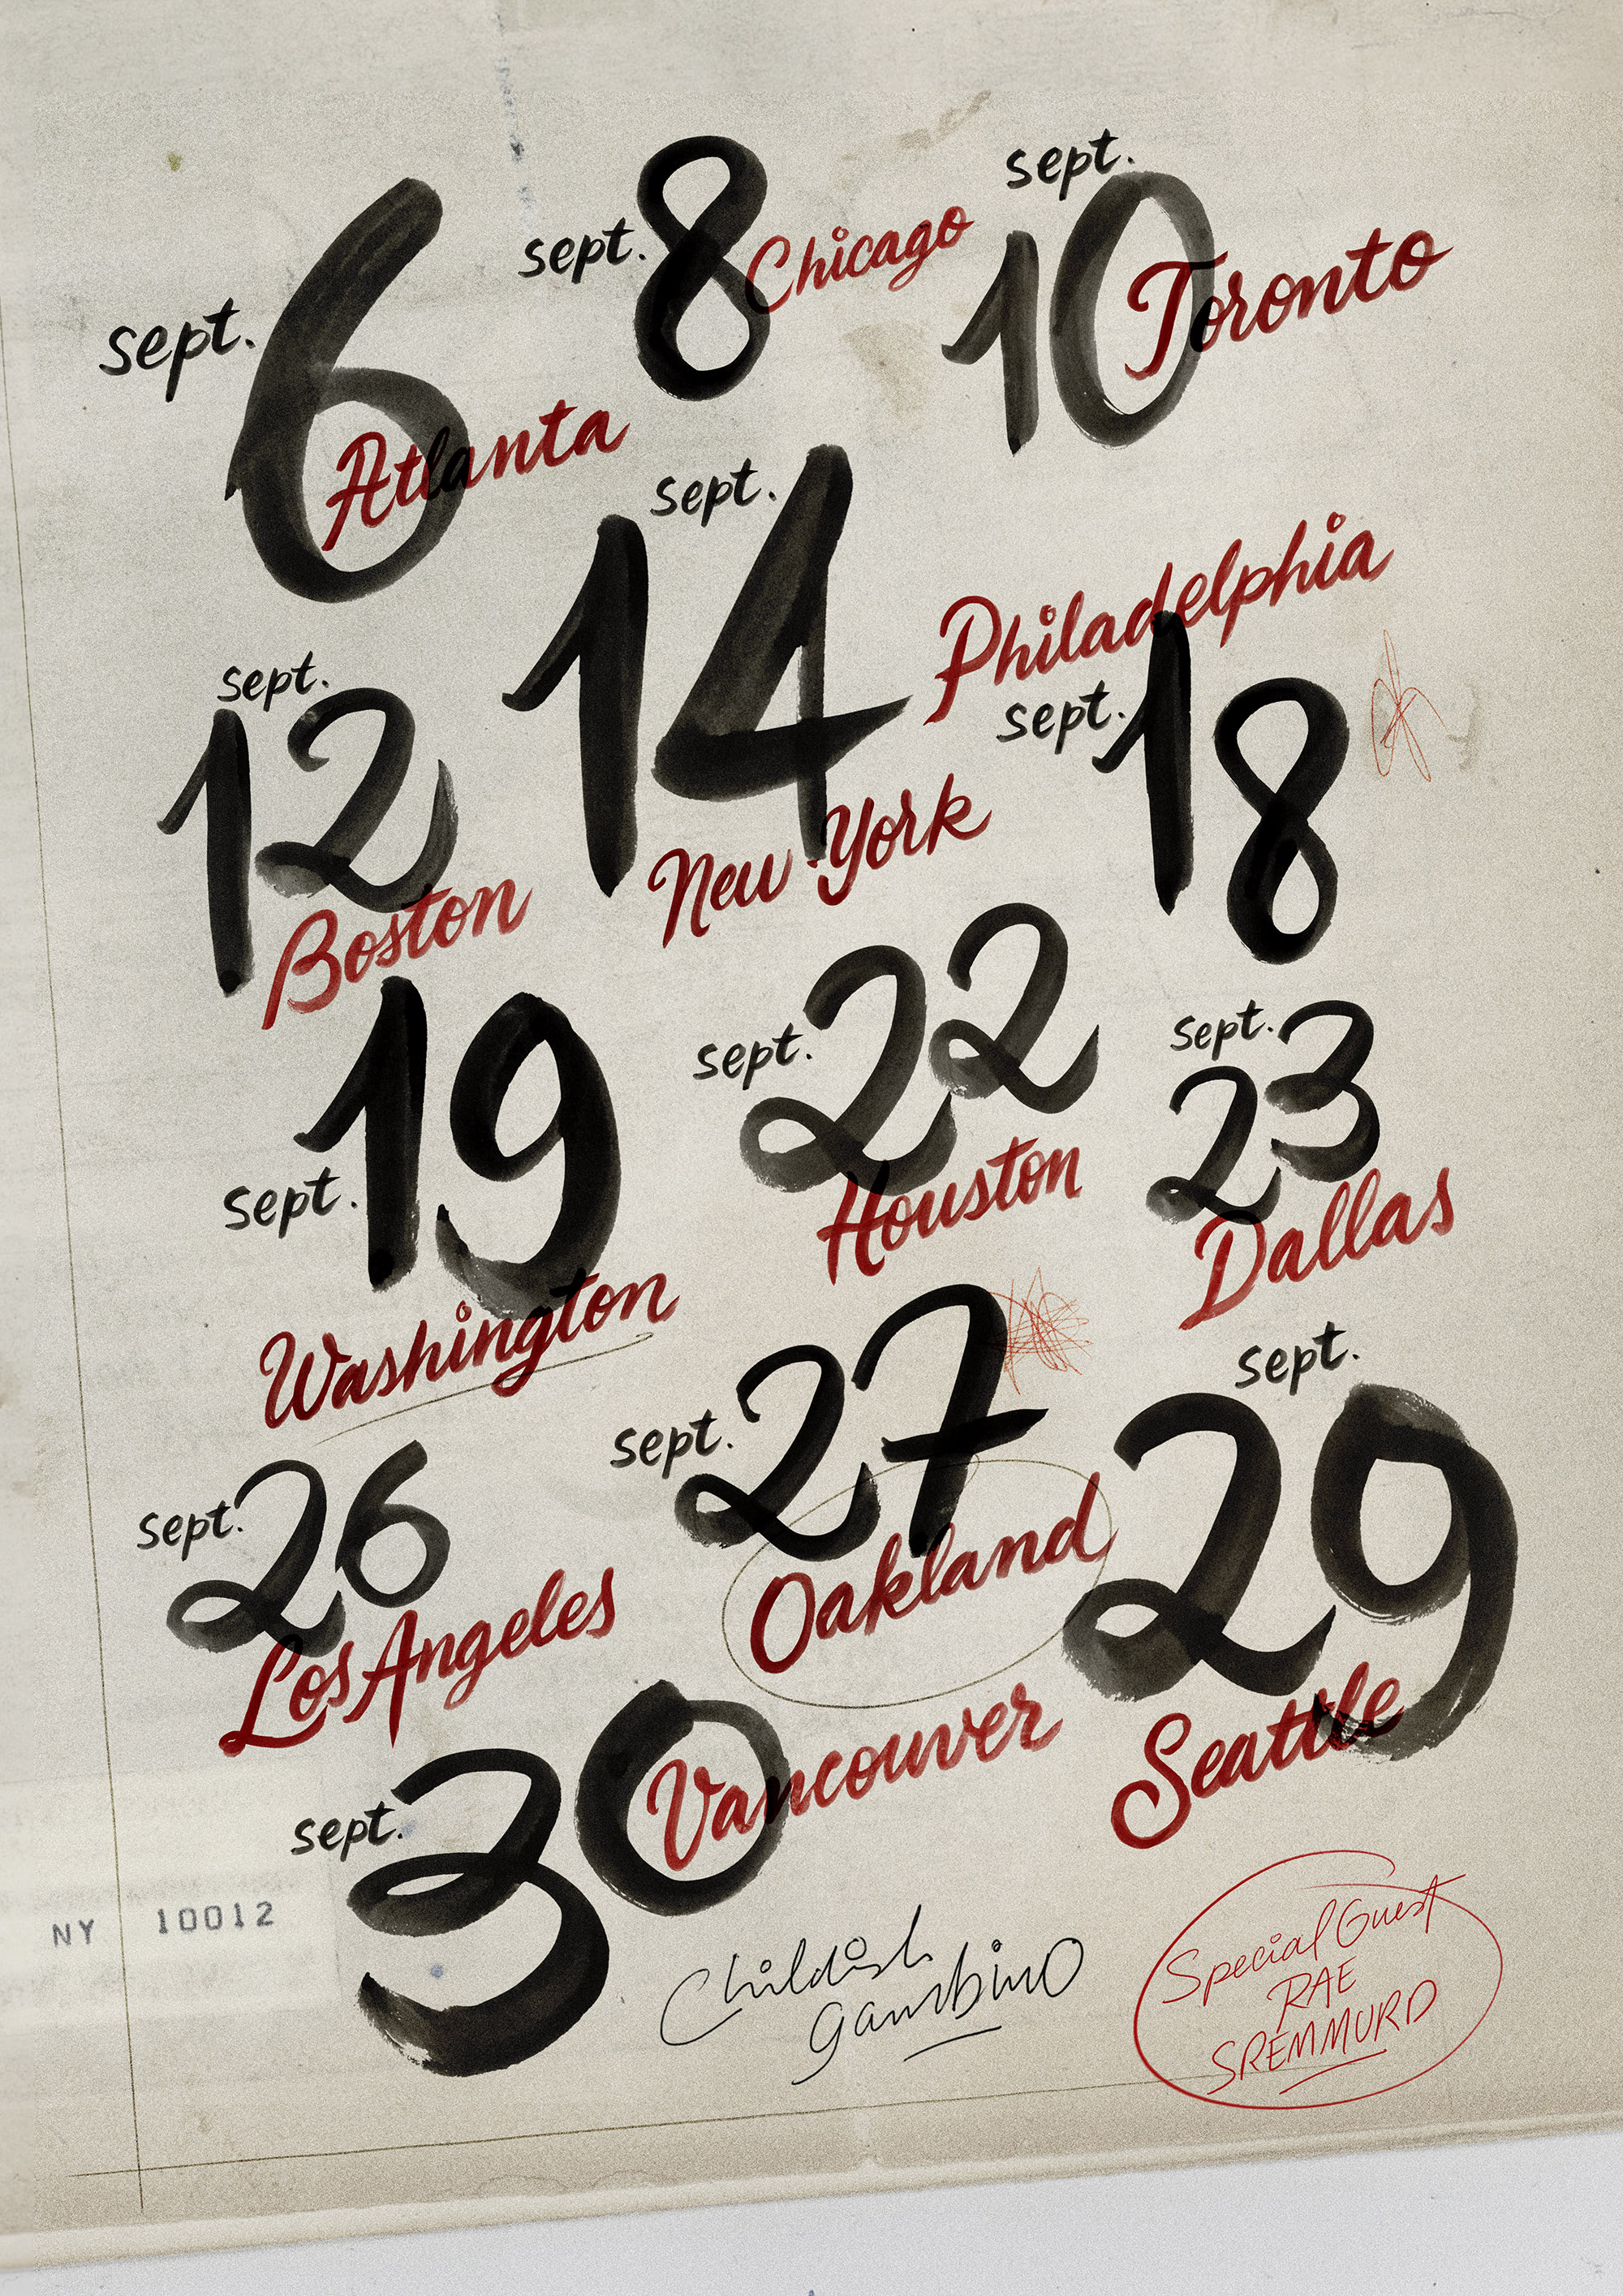 sept. 6
Atlanta
sept. 8
Chicago
sept. 10
Toronto
sept. 12
Boston
sept. 14
New York
Philadelphia
sept. 18
sept. 19
Washington
sept. 22
Houston
sept. 23
Dallas
sept. 26
Los Angeles
sept. 27
Oakland
sept. 29
Seattle
sept. 30
Vancouver
NY 10012
Childish
Gambino
Special Guest
RAE
SREMMURD